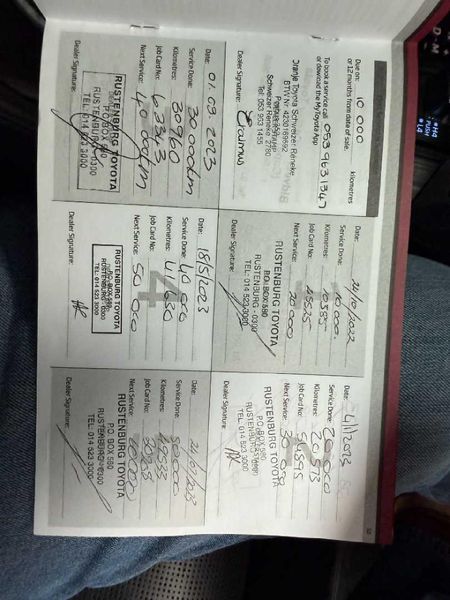 Due on: 10 000 kilometres
or 12 months from date of sale.
To book a service call 053 963 1347
or download the MyToyota App
Oranje Toyota Schweizer Reneke
BTW Nr 4230169692
Schweizer Reneke, 2780
Tel: 053 903 1455
Dealer Signature:
Date: 21/10/2022
Service Done: 10 000
Kilometres: 10385
Job Card No:
Next Service: 20 000
RUSTENBURG TOYOTA
P.O. BOX 580
RUSTENBURG - 0300
TEL: 014 523 3000
Dealer Signature:
Date: 4/1/2023
Service Done: 20 000
Kilometres: 20 573
Job Card No: 54895
Next Service: 30 000
RUSTENBURG TOYOTA
P.O. BOX 580
TEL: 014 523 3000
Dealer Signature:
Date: 01.03.2023
Service Done: 30 000km
Kilometres: 30960
Job Card No: 63343
Next Service: 40 000km
RUSTENBURG TOYOTA
P.O. BOX 580
RUSTENBURG - 0300
TEL: 014 523 3000
Dealer Signature:
Date: 18/5/2023
Service Done: 40 000
Kilometres: 41630
Job Card No:
4
Next Service: 50 000
RUSTENBURG TOYOTA
P.O. BOX 580
RUSTENBURG - 0300
TEL: 014 523 3000
Dealer Signature:
Date:
Service Done: 50000
Kilometres:
Job Card No:
Next Service: 60000
RUSTENBURG TOYOTA
P.O. BOX 580
RUSTENBURG - 0300
TEL: 014 523 3000
Dealer Signature:
H4
PUSH
L4